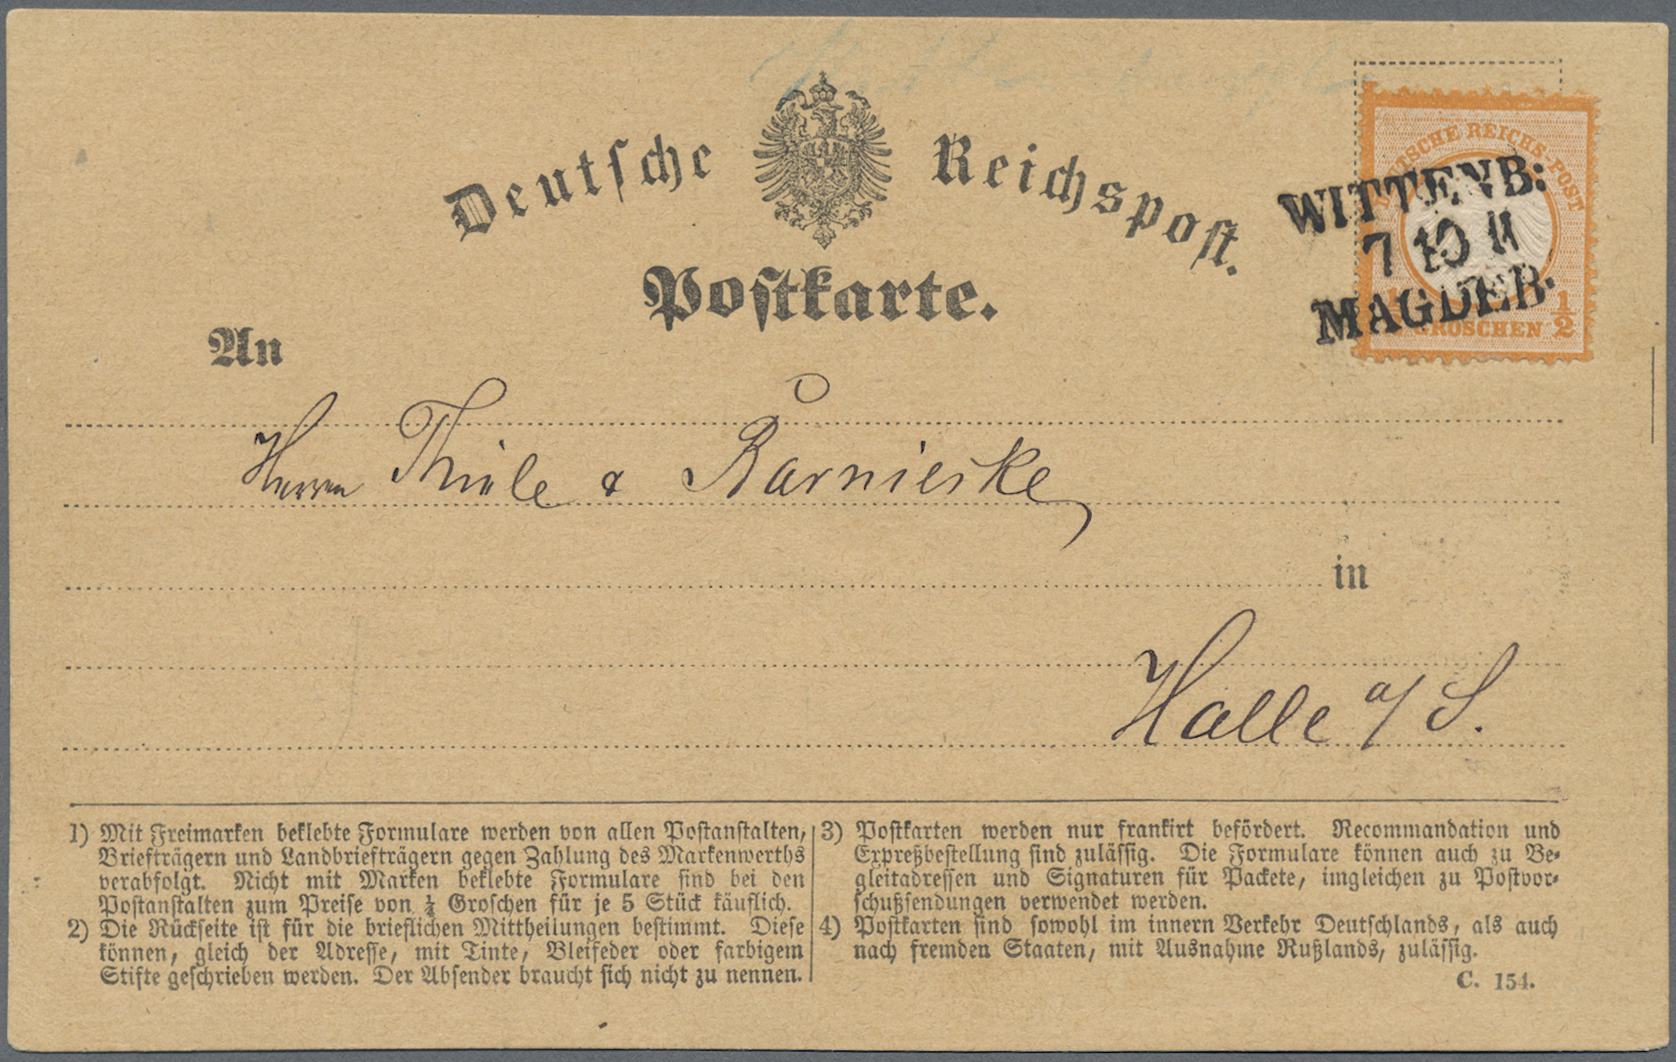 Deutsche Reichspost.
Postkarte.
An
Herrn Thiele & Barnieske
in
Halle a/S.
DEUTSCHE REICHS-POST
GROSCHEN 1/2
WITTENB:
7 10 II
MAGDEB:
1) Mit Freimarken beklebte Formulare werden von allen Postanstalten,
Briefträgern und Landbriefträgern gegen Zahlung des Markenwerths
verabfolgt. Nicht mit Marken beklebte Formulare sind bei den
Postanstalten zum Preise von ¼ Groschen für je 5 Stück käuflich.
2) Die Rückseite ist für die brieflichen Mittheilungen bestimmt. Diese
können, gleich der Adresse, mit Tinte, Bleifeder oder farbigem
Stifte geschrieben werden. Der Absender braucht sich nicht zu nennen.
3) Postkarten werden nur frankirt befördert. Recommandation und
Expreßbestellung sind zulässig. Die Formulare können auch zu Be-
gleitadressen und Signaturen für Packete, imgleichen zu Postvor-
schußsendungen verwendet werden.
4) Postkarten sind sowohl im innern Verkehr Deutschlands, als auch
nach fremden Staaten, mit Ausnahme Rußlands, zulässig.
C. 154.